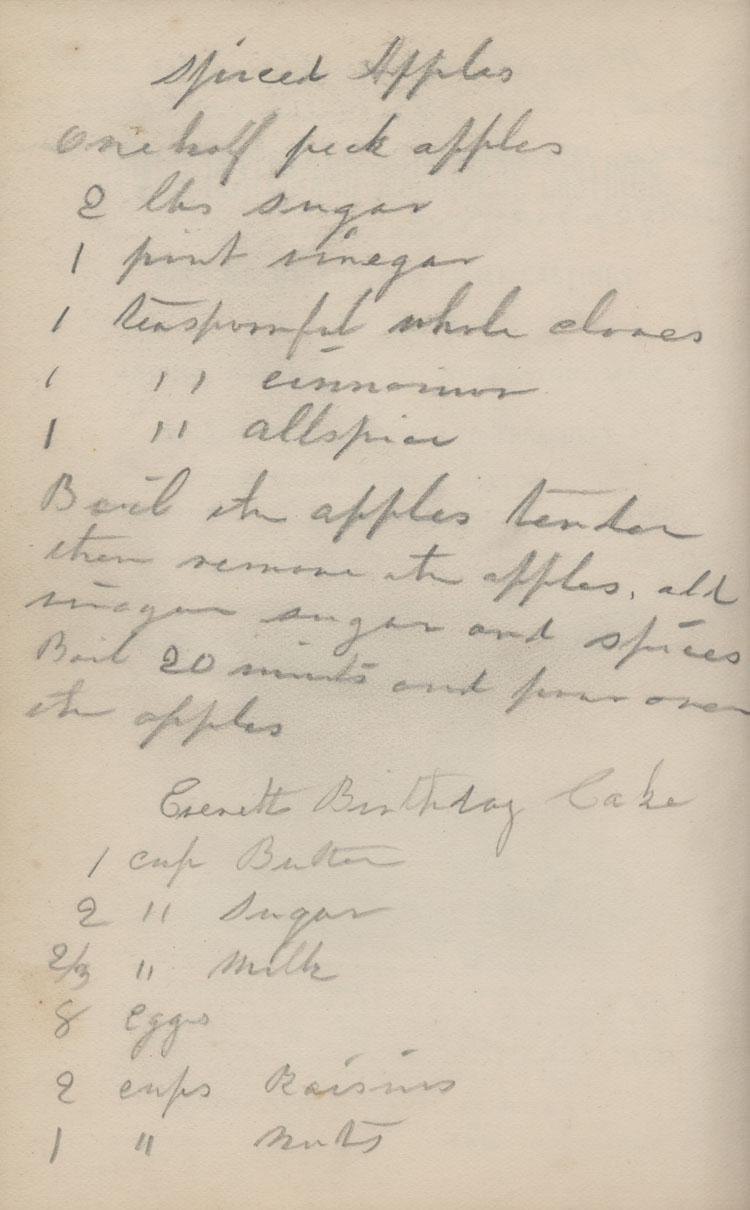 Spiced Apples
One half peck apples
2 lbs sugar
1 pint vinegar
1 teaspoonful whole cloves
1 " cinnamon
1 " allspice
Boil the apples tender
then remove the apples. add
vinegar sugar and spices
Boil 20 minuts and pour over
the apples
Everett Birthday Cake
1 cup Butter
2 " Sugar
2/3 " Milk
8 eggs
2 cups Raisins
1 " Nuts